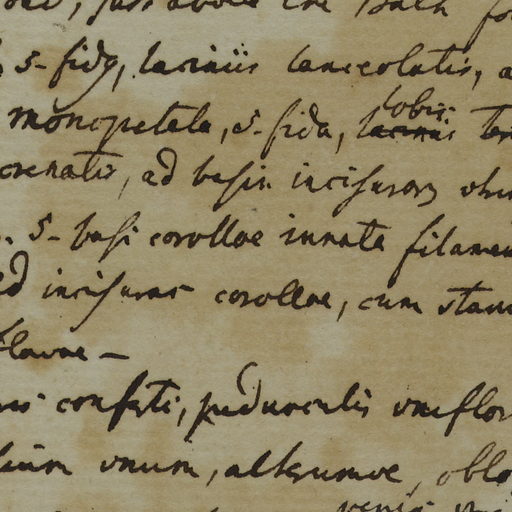 just above the
5-fidg, laciniis lanceolatis, a
lobis
monopetala, 5-fida, laciniis ter
crenatis, ad basin incisurarum
5- basi corollae innata filamen
ad incisuras corollae, cum stam
flavae —
conferti, pedunculis uniflor
unum, alterumve, oblo